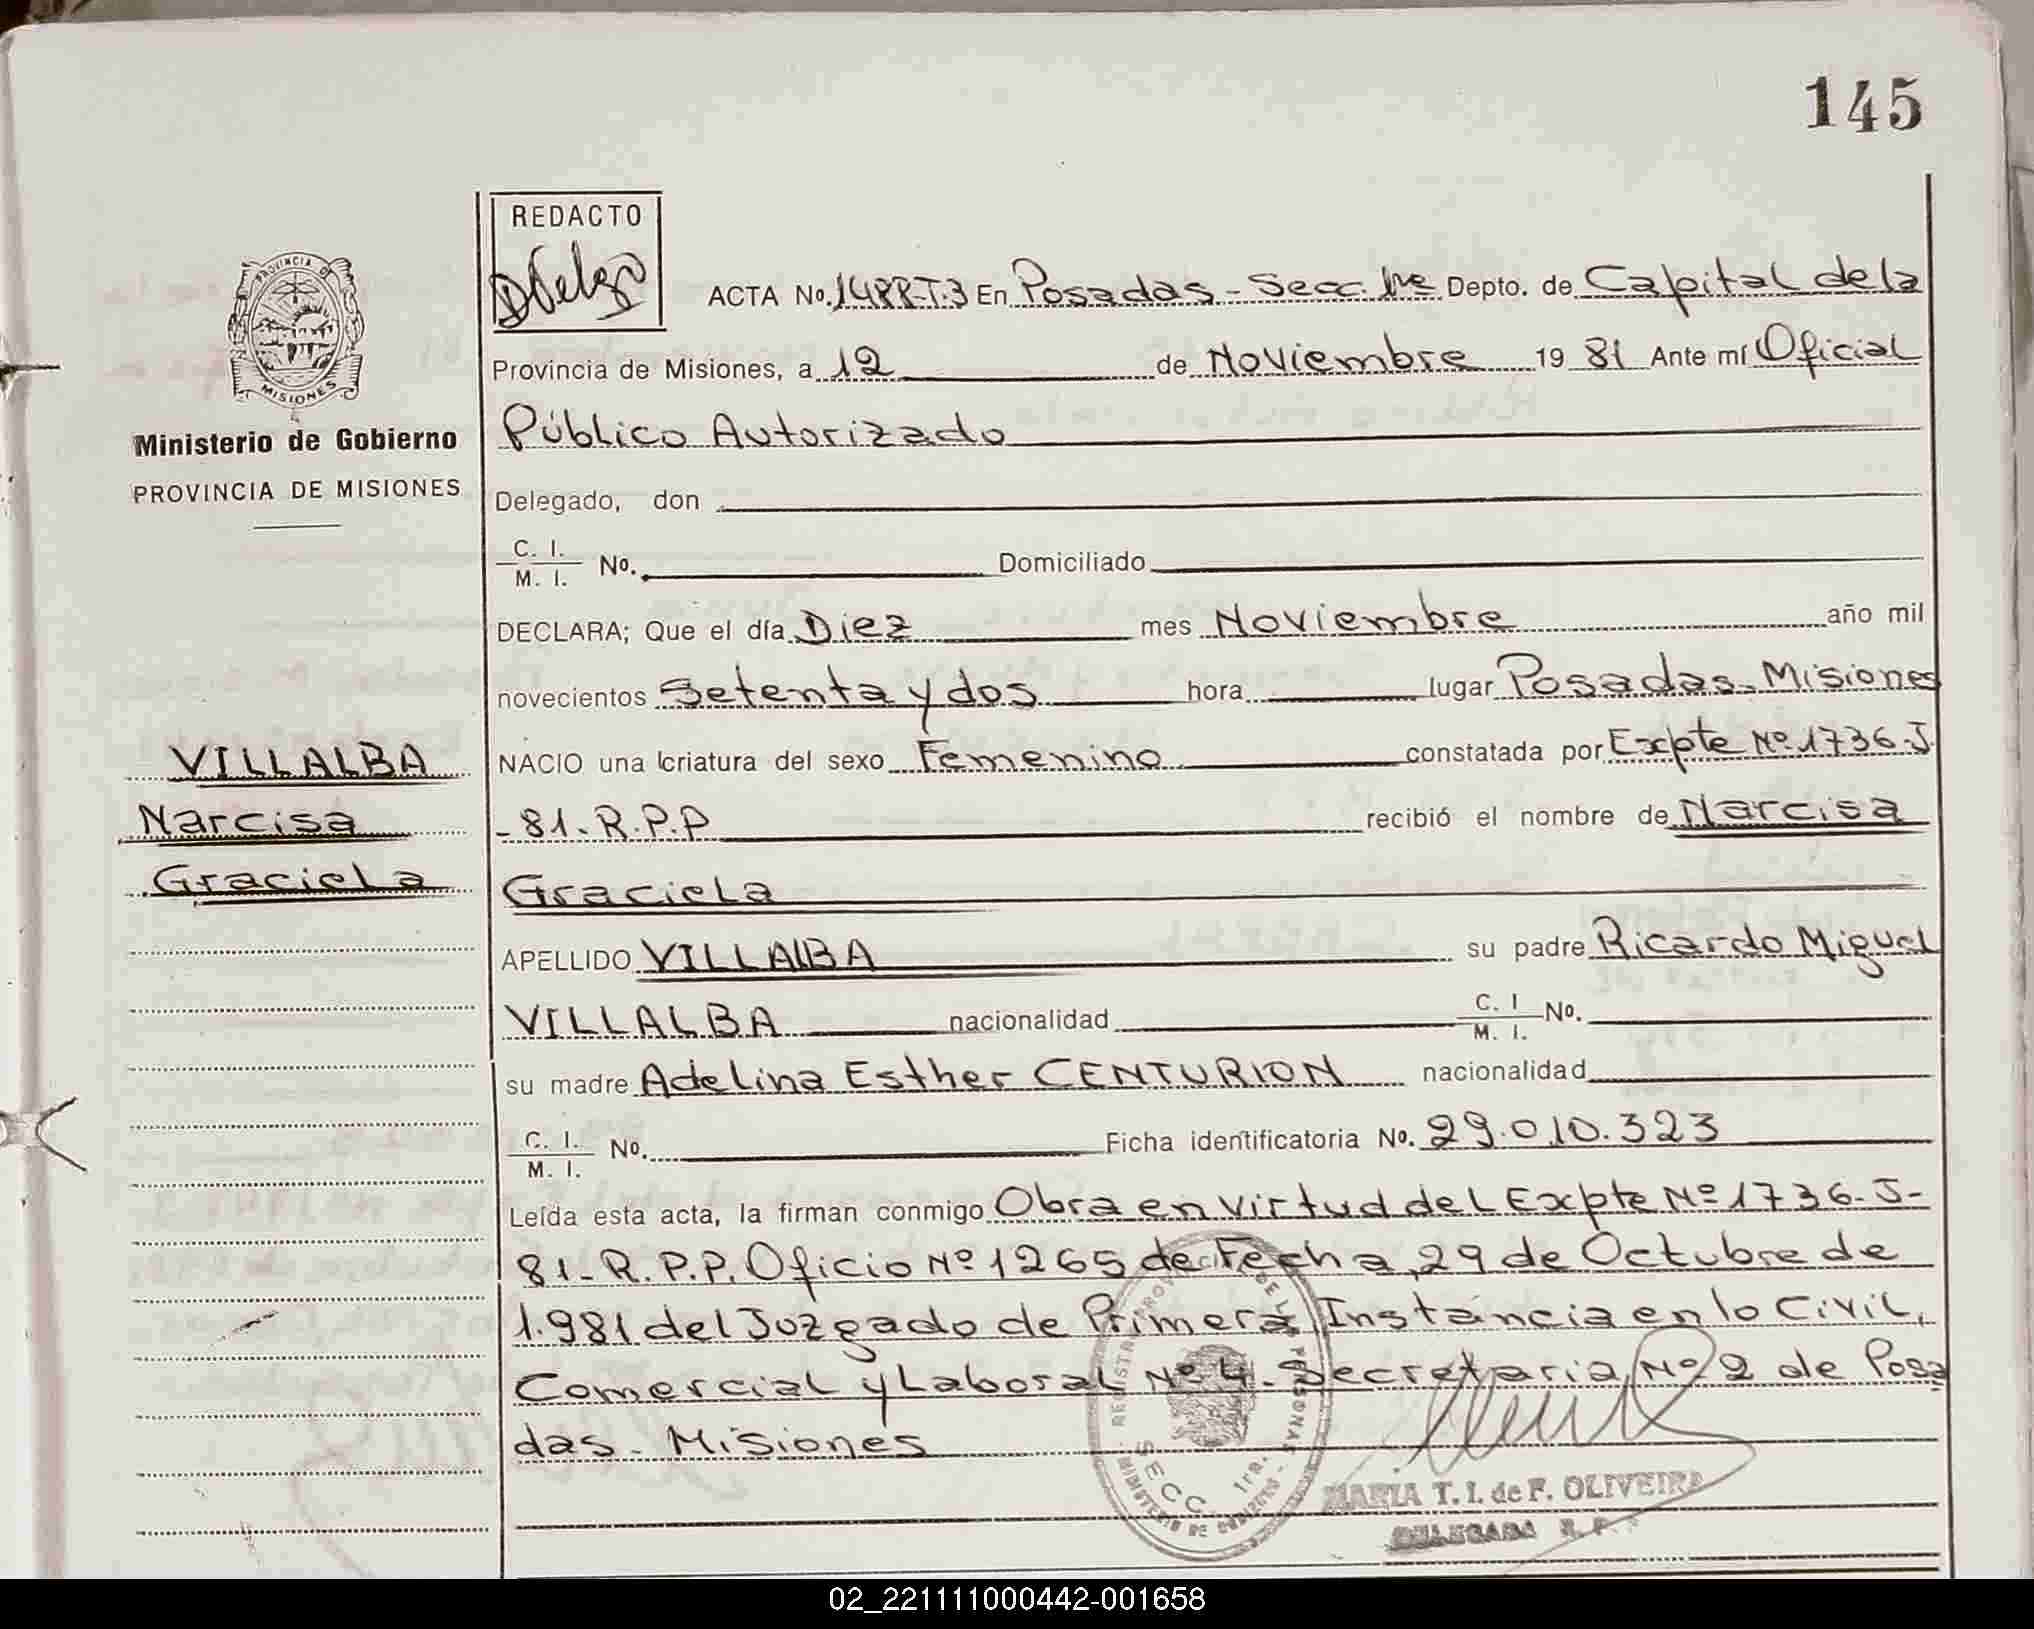 145
REDACTO
PROVINCIA DE
MISIONES
Ministerio de Gobierno
PROVINCIA DE MISIONES
VILLALBA
Narcisa
Graciela
ACTA No. 1488-T.3 En Posadas - Secc. 1ra Depto. de Capital de la
Provincia de Misiones, a 12 de Noviembre 19 81 Ante mí Oficial
Público Autorizado
Delegado, don
C. I.
M. I. No. Domiciliado
DECLARA; Que el día Diez mes Noviembre año mil
novecientos Setenta y dos hora lugar Posadas- Misiones
NACIO una criatura del sexo Femenino constatada por Expte Nº 1736-J
-81-R.P.P recibió el nombre de Narcisa
Graciela
APELLIDO VILLALBA su padre Ricardo Miguel
VILLALBA nacionalidad C. I
M. I. No.
su madre Adelina Esther CENTURION nacionalidad
C. I.
M. I. No. Ficha identificatoria No. 29.010.323
Leída esta acta, la firman conmigo Obra en virtud del Expte Nº 1736-J-
81-R.P.P. Oficio Nº 1265 de Fecha, 29 de Octubre de
1.981 del Juzgado de Primera Instancia en lo Civil,
Comercial y Laboral Nº 4- Secretaria Nº 2 de Posa
das- Misiones
SECC. 1ra.
MARIA T. I. de F. OLIVEIRA
DELEGADA R. P.
02_221111000442-001658